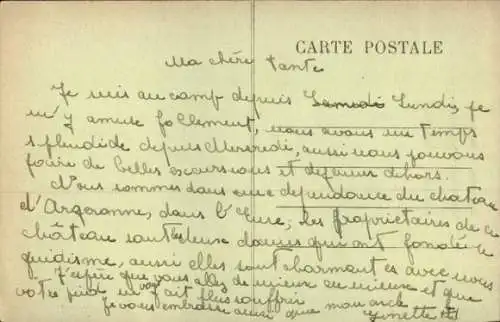 CARTE POSTALE
Ma chère tante
Je suis au camp depuis Samedi Lundi, je
m'y amuse follement, nous avons un temps
splendide depuis Mercredi, aussi nous pouvons
faire de belles excursions et déjeuner dehors.
Nous sommes dans une dépendance du chateau
d'Argeronne, dans l'Eure; les propriétaires de ce
château sont les deux dames qui ont fondé le
guidisme, aussi elles sont charmantes avec nous
J'espère que vous allez de mieux en mieux et que
votre pied ne vous fait plus souffrir
Je vous embrasse ainsi que mon oncle
Ginette